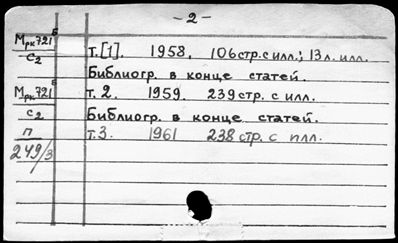 - 2 -
Мрк721б
С2
т.[1]. 1958, 106 стр. с илл.; 13 л. илл.
Библиогр. в конце статей.
Мрк721б
С2
т. 2. 1959. 239 стр. с илл.
Библиогр. в конце статей.
П
249/3
т.3. 1961 238 стр. с илл.